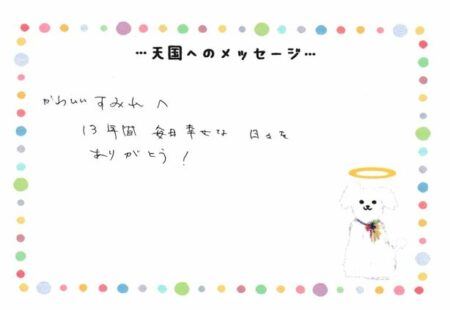 …天国へのメッセージ…
かわいい すみれ へ
13年間 毎日幸せな 日々を
ありがとう!